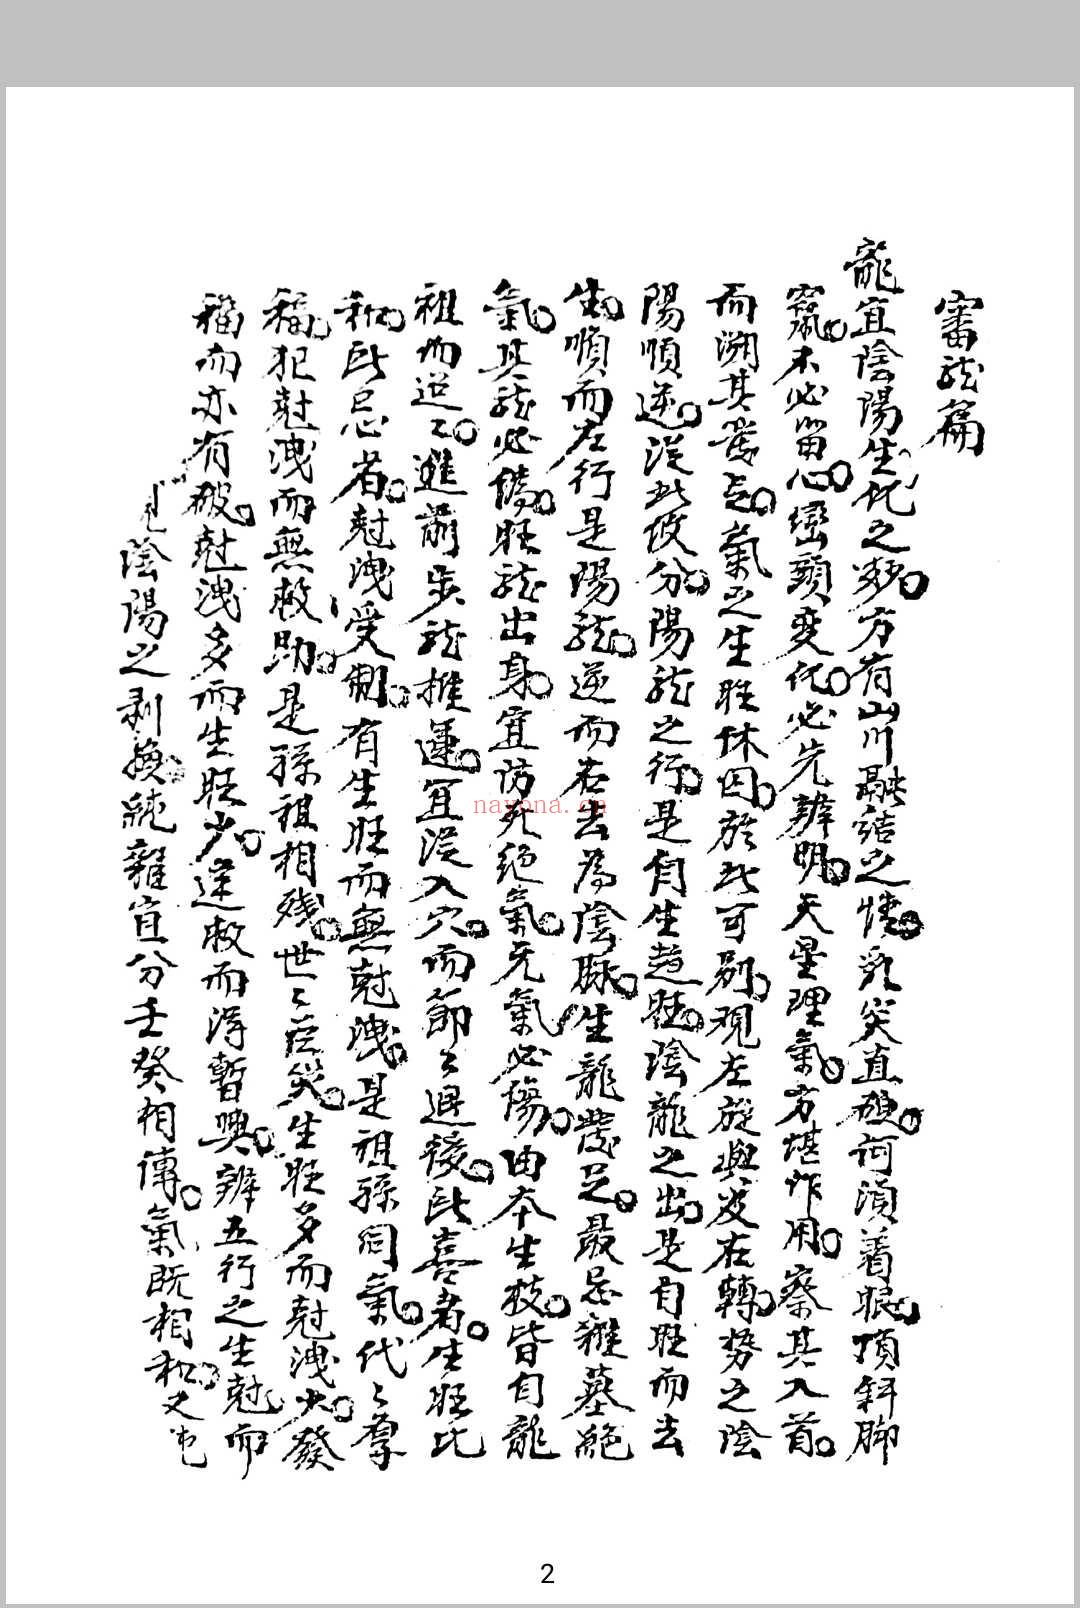 審龍篇
龍宜陰陽生化之妙。方有山川融結之情。乳突直硬。何須着眼。頂斜脚
竄。不必留心。巒頭変化。必先辨明。天星理氣。方堪作用。察其入首。
而溯其發足。氣之生旺休囚。於此可别。观左旋與及右轉。势之陰
陽順逆。従此攸分。陽龍之行。是自生趋旺。陰龍之出。是自旺而去
生。順而左行是陽龍。逆而右去為陰脉。生龍發足。最忌雜墓絕
氣。其龍必傷。旺龍出身。宜防死绝氣。旡氣必傷。由本生枝。皆自龍
祖而迢〻。進前步龍推運。宜従入穴。而節〻退後。此喜者。生旺比
和。此忌者。尅洩受制。有生旺而無尅洩。是祖孫同氣。代〻享
福。犯尅洩而無救助。是孫祖相残。世〻災。生旺多而尅洩少。發
福而亦有破。尅洩多而生旺少。逢救而得暫興。辨五行之生尅而
陰陽之剥换。純雜宜分壬癸相傳。氣既相和。又
nayona.cn
2